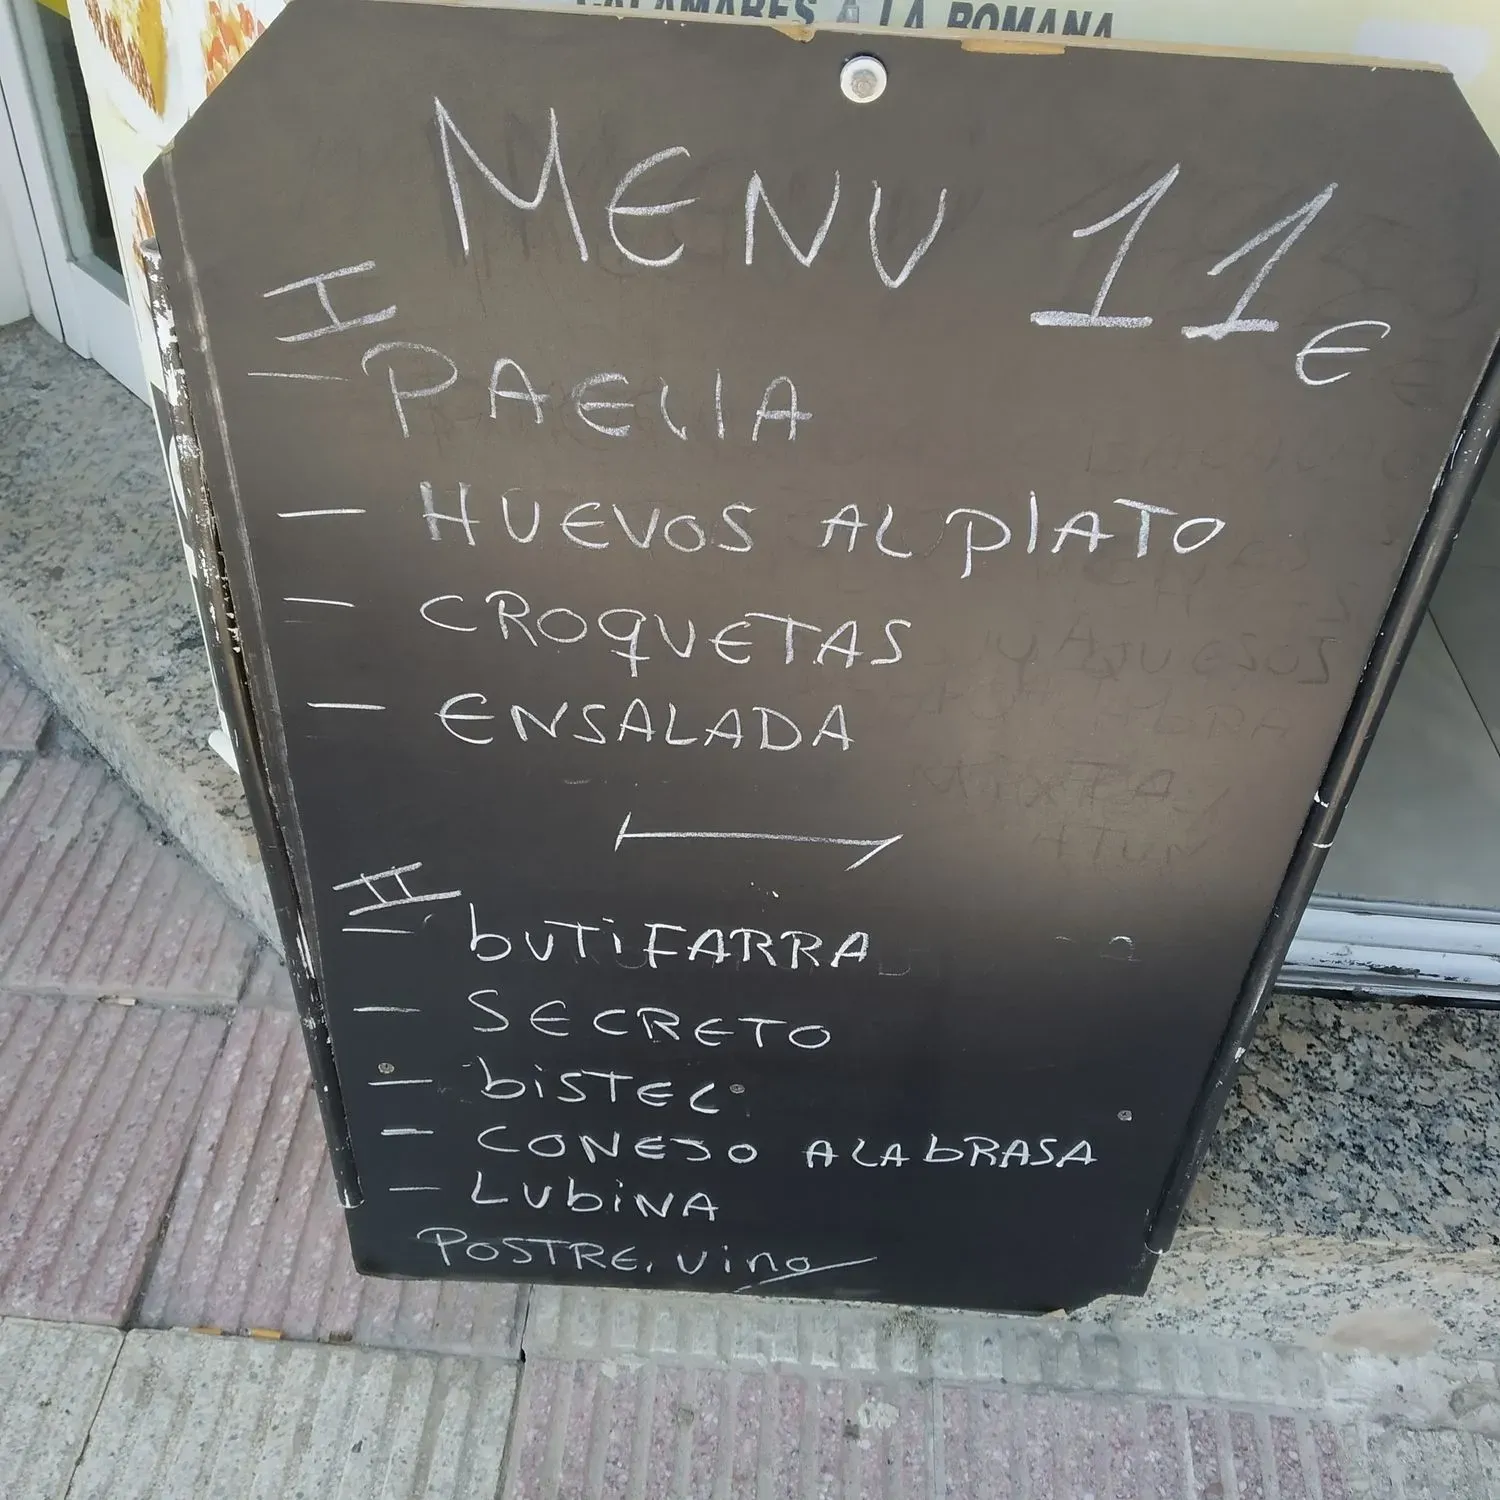 CALAMARES A LA ROMANA
MENU 11€
I
- PAELLA
- HUEVOS AL PLATO
- CROQUETAS
- ENSALADA
II
- BUTIFARRA
- SECRETO
- BISTEC
- CONEJO A LA BRASA
- LUBINA
POSTRE. Vino